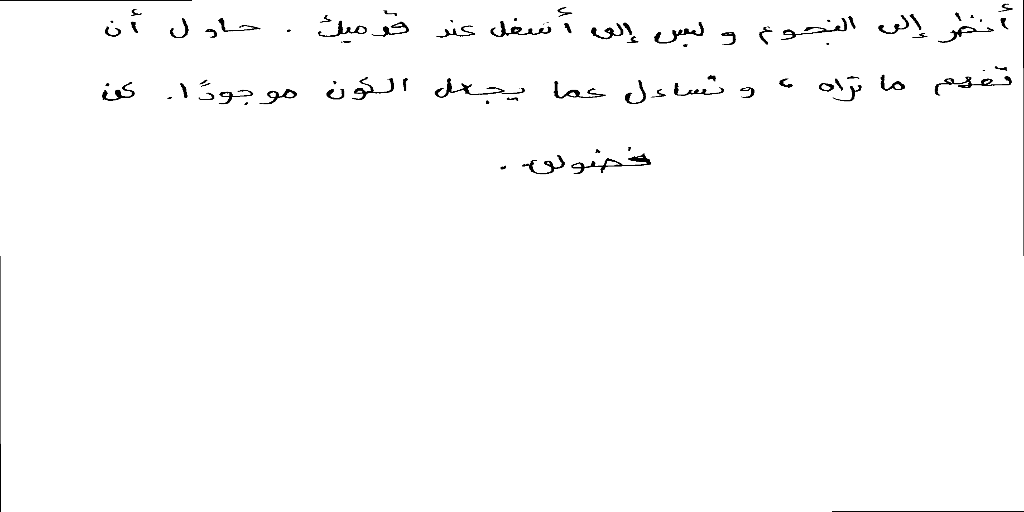 أنظر إلى النجوم وليس إلى أسفل عند قدميك . حاول أن
تفهم ما تراه ، وتساءل عما يجعل الكون موجودًا. كن
فضولى .